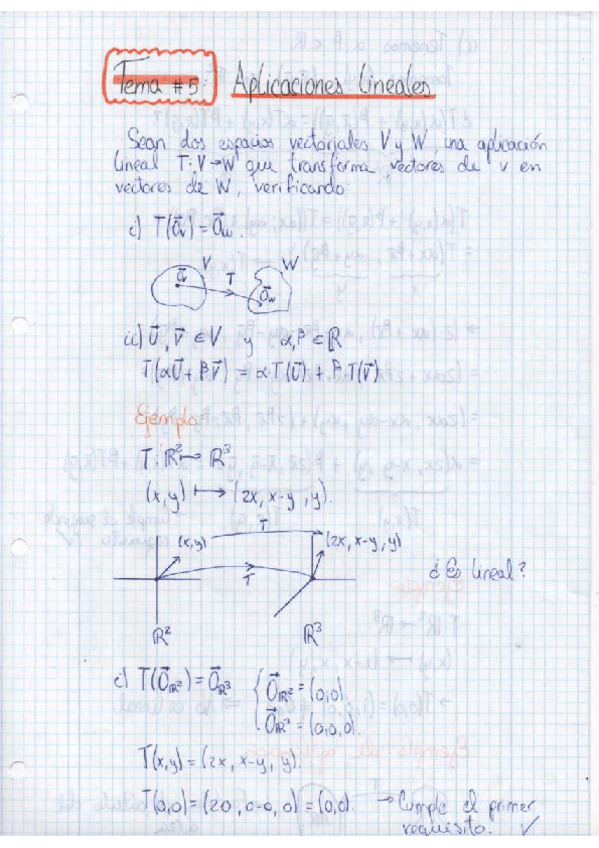 Tema #5: Aplicaciones Lineales
Sean dos espacios vectoriales V y W, una aplicación
lineal T: V→W que transforma vectores de V en
vectores de W, verificando
i) T(0⃗v) = 0⃗w.
V T W
0⃗v 0⃗w
ii) U⃗, V⃗ ∈ V y α, β ∈ ℝ
T(αU⃗ + βV⃗) = α·T(U⃗) + β·T(V⃗)
Ejemplo
T: ℝ² ↦ ℝ³
(x,y) ↦ (2x, x-y, y).
T
(x,y) (2x, x-y, y)
T
¿Es lineal?
ℝ² ℝ³
i) T(0⃗ℝ²) = 0⃗ℝ³ { 0⃗ℝ² = (0,0)
0⃗ℝ³ = (0,0,0).
T(x,y) = (2x, x-y, y).
T(0,0) = (2·0, 0-0, 0) = (0,0). → Cumple el primer
requisito. ✓